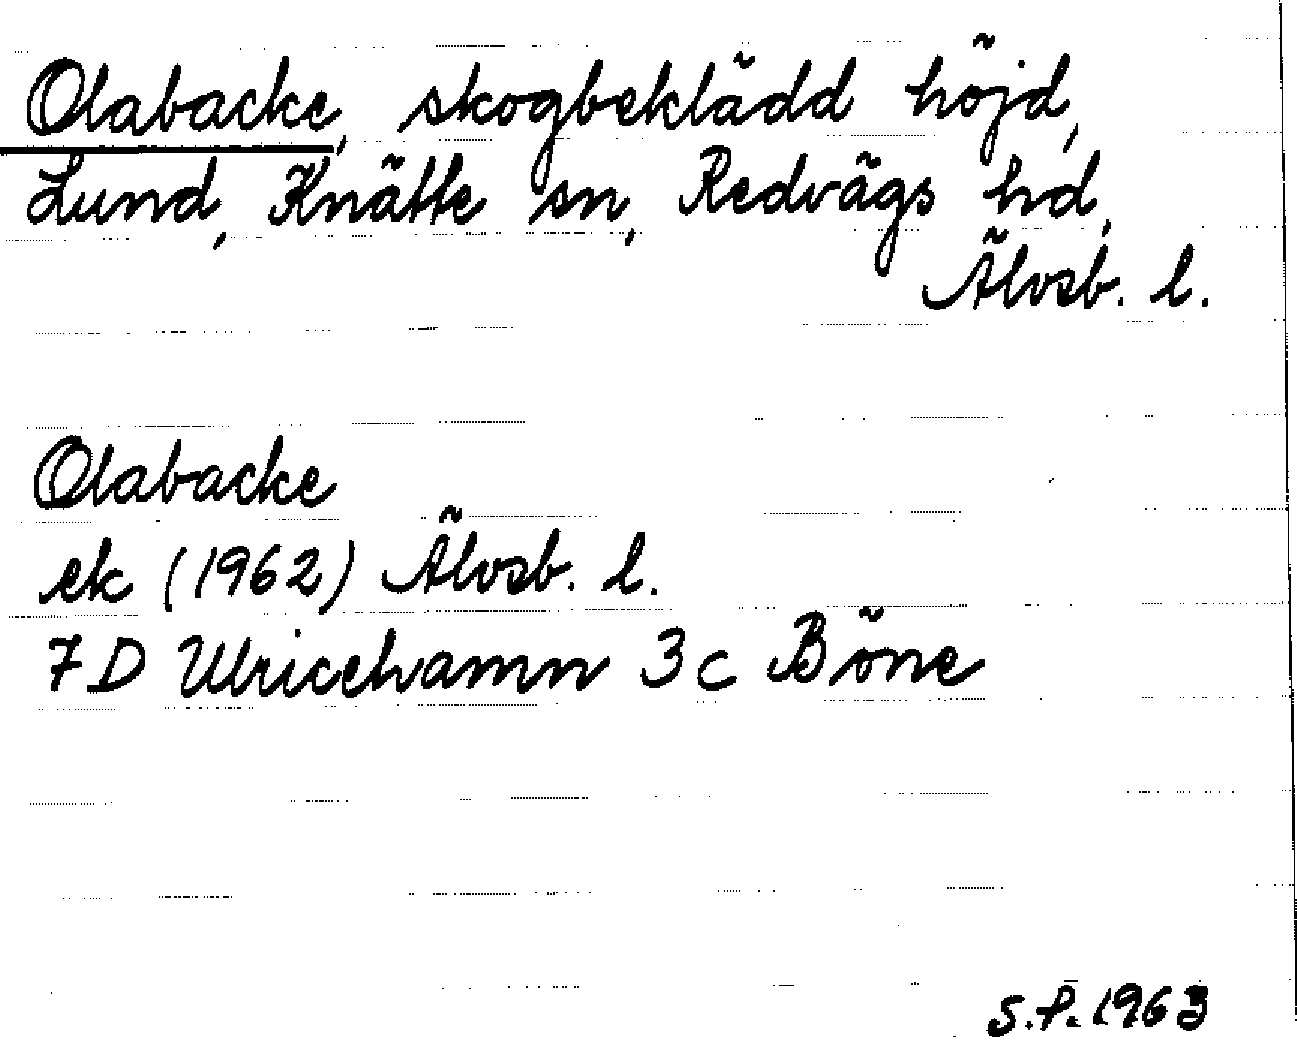 Olabacke, skogbeklädd höjd,
Lund, Knätte sn, Redvägs hd,
Älvsb. l.
Olabacke
ek (1962) Älvsb. l.
7D Ulricehamn 3c Böne
S.P. 1963